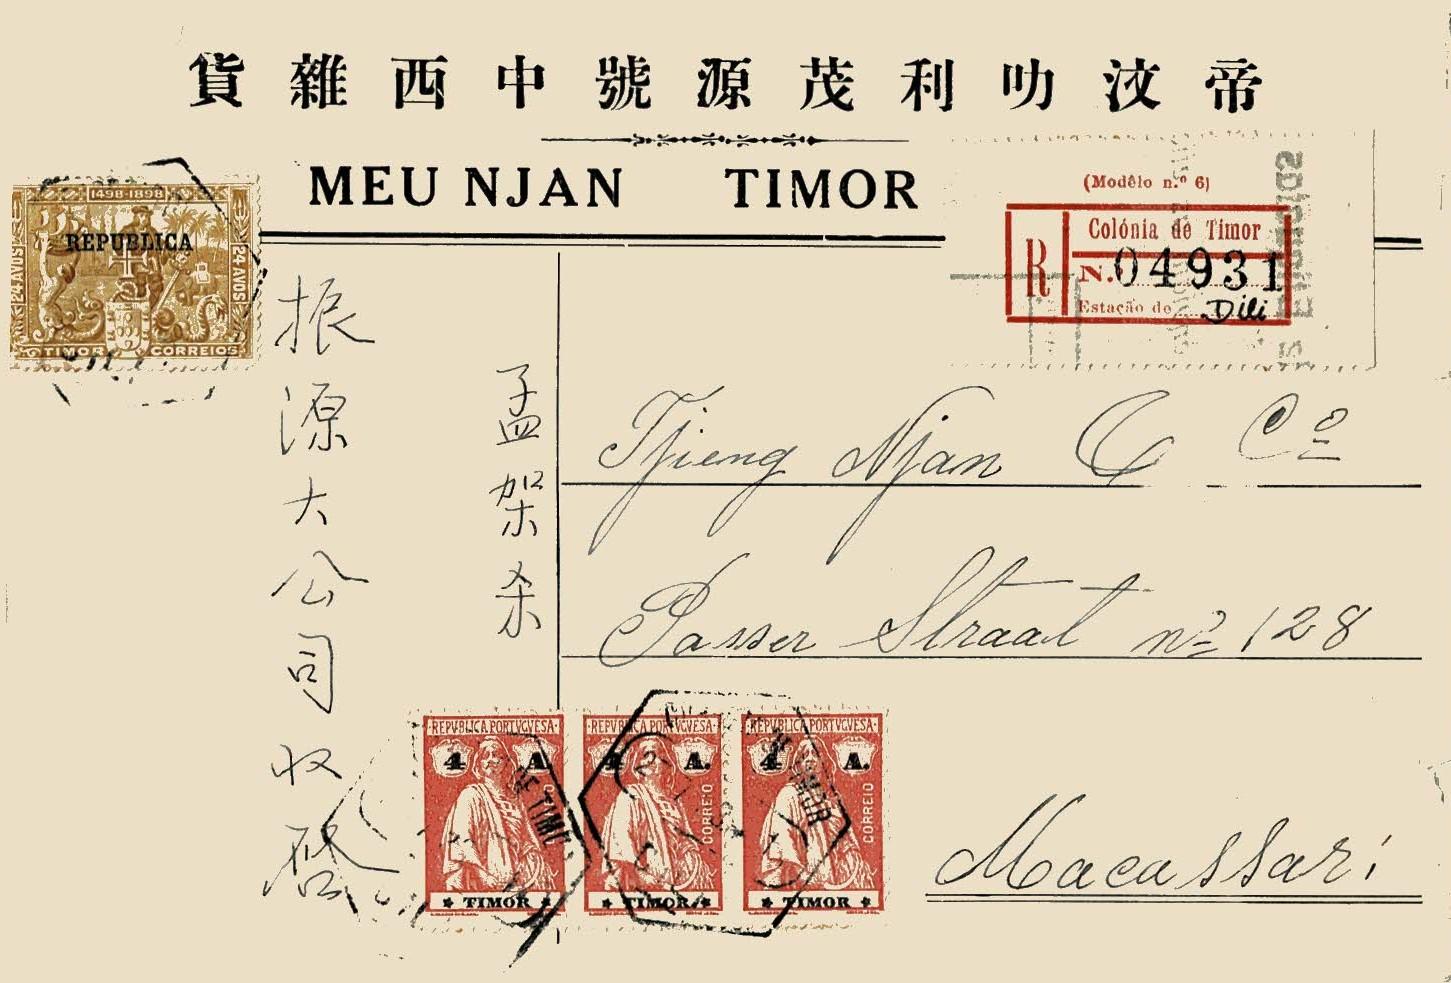 貨雜西中號源茂利叻汶帝
MEU NJAN TIMOR
1498-1898
REPUBLICA
24 AVOS
24 AVOS
TIMOR CORREIOS
(Modêlo n.º 6)
R
Colónia de Timor
N. 04931
Estação de Dili
振源大公司收啓
孟架杀
Tjieng Njan & Cº
Passer Straat nº 128
Macassar
REPVBLICA PORTVGVESA
4 A
CORREIO
TIMOR
REPVBLICA PORTVGVESA
4 A.
CORREIO
TIMOR
REPVBLICA PORTVGVESA
4 A.
CORREIO
TIMOR